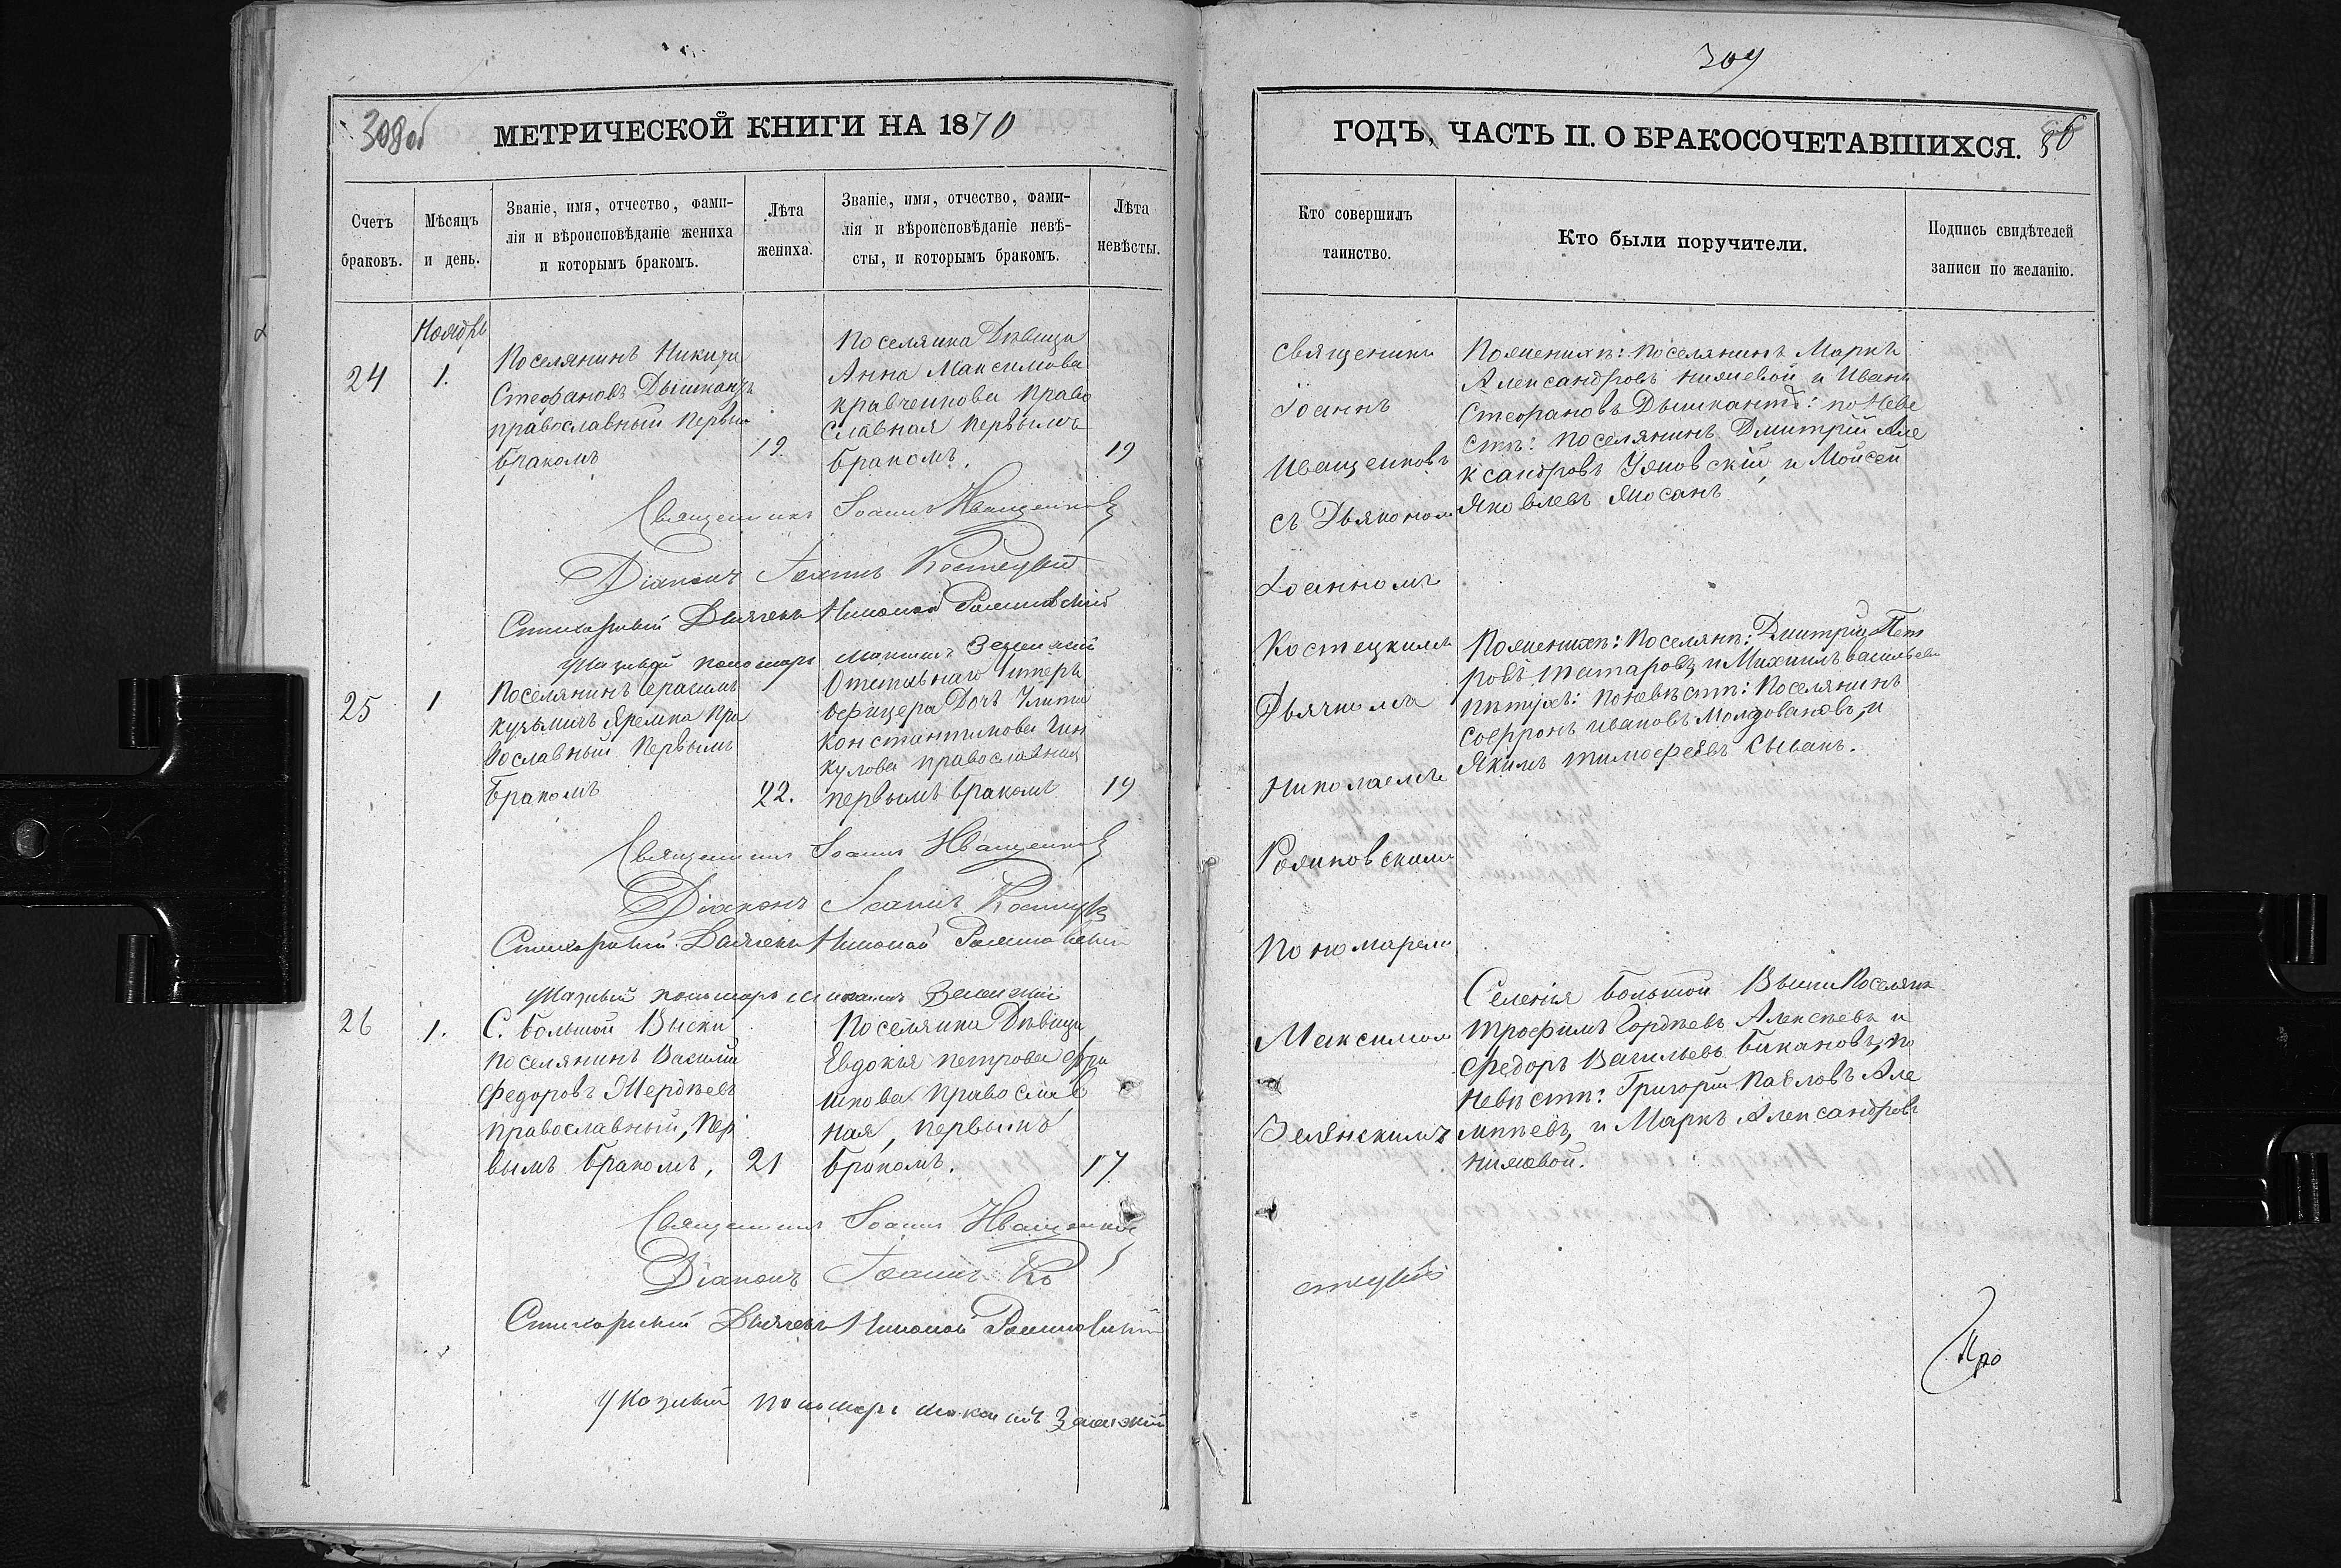 308об
МЕТРИЧЕСКОЙ КНИГИ НА 1870
Счетъ
браковъ.
Мѣсяцъ
и день.
Званіе, имя, отчество, фами-
лія и вѣроисповѣданіе жениха
и которымъ бракомъ.
Лѣта
жениха.
Званіе, имя, отчество, фами-
лія и вѣроисповѣданіе невѣ-
сты, и которымъ бракомъ.
Лѣта
невѣсты.
Ноябрь
24
1.
Поселянинъ Никита
Стефановъ Дышкантъ
православный первым
бракомъ
19.
Поселянка Дѣвица
Анна Максимова
Кравченкова право
славная первымъ
бракомъ.
19
Священникъ Іоаннъ Иващенков
Діаконъ Іоаннъ Костецкій
Стихарный Дьячекъ Николай
Указный пономарь Максимъ Зеленскій
25
1
Поселянинъ Герасимъ
Кузьмичъ Яремка пра
вославный первымъ
бракомъ
22.
Отставнаго унтеръ
офицера Дочь Улита
Константинова
кулова православная
первымъ бракомъ
19
Священникъ Іоаннъ Иващенков
Діаконъ Іоаннъ Костецкій
Стихарный Дьячекъ Николай
Указный пономарь Максимъ Зеленскій
26
1.
С. Большой Выски
поселянинъ Василій
Федоровъ
православный, пер
вымъ бракомъ,
21
Поселянка Дѣвица
Евдокія Петрова
шкова Православ
ная, первымъ
бракомъ.
17
Священникъ Іоаннъ Иващенков
Діаконъ Іоаннъ Ко
Стихарный Дьячекъ Николай
Указный пономарь Максимъ Зеленскій
309
ГОДЪ, ЧАСТЬ II. О БРАКОСОЧЕТАВШИХСЯ.
56
Кто совершилъ
таинство.
Кто были поручители.
Подпись свидѣтелей
записи по желанію.
Священникъ
Іоаннъ
Иващенковъ
съ Дьякономъ
Іоанномъ
Костецкимъ
Дьячкомъ
Николаемъ
Пономаремъ
Максимом
Зеленскимъ
стецкій
По женихѣ: поселянинъ Маркъ
Александровъ и Иванъ
Стефановъ Дышкантъ: по неве
стѣ: поселянинъ Дмитрій Але
ксандровъ и Мойсей
Яковлевъ
По женихѣ: поселяне: Дмитрій Пет
ровъ Татаровъ и Михаилъ Васильевъ
Пѣтухъ: по невѣстѣ: поселянинъ
Софронъ Ивановъ Молдовановъ, и
Якимъ Тимофѣевъ Сыванъ.
Селенія Большой Выски Поселяне
Трофимъ Гордѣевъ Алексѣевъ и
Федоръ Васильевъ Бакановъ, по
невѣстѣ: Григорій Павловъ Але
ксѣевъ, и Маркъ Александровъ